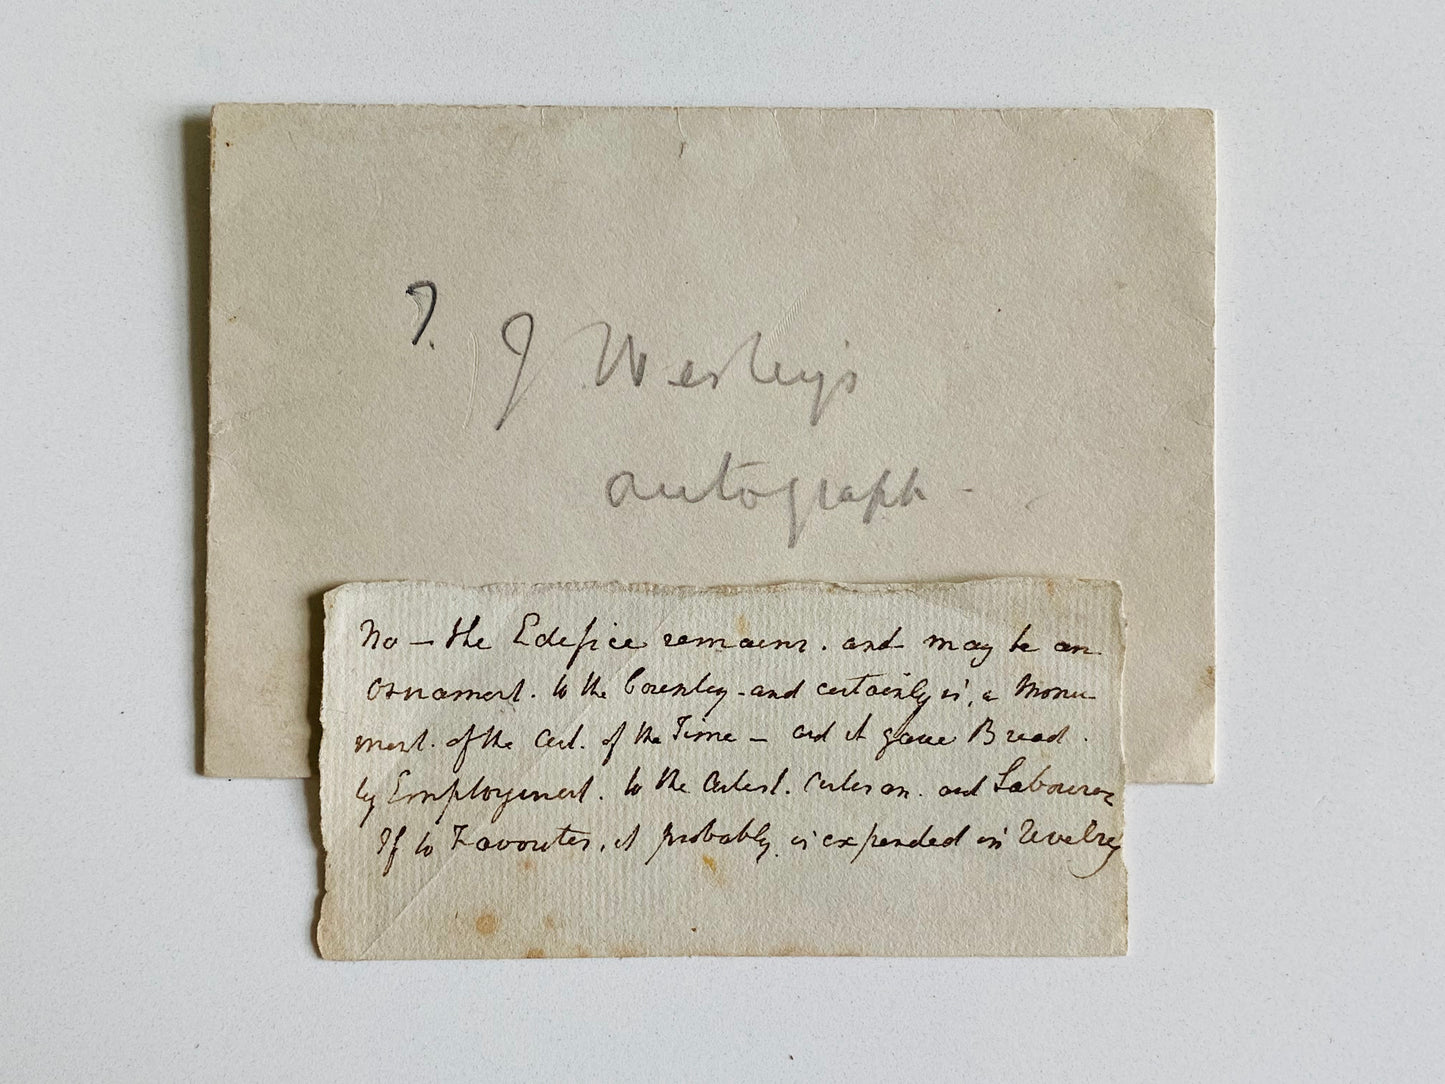 ?.
J Wesley's
autograph -
No - the Edefice remains. and may be an
Ornament. to the Country - and certainly is, a Monu-
ment. of the Art. of the Time - and it gave Bread.
by Employment. to the Artist. Artisan. and Labourer
If to Favorites, it probably is expended in Revelry